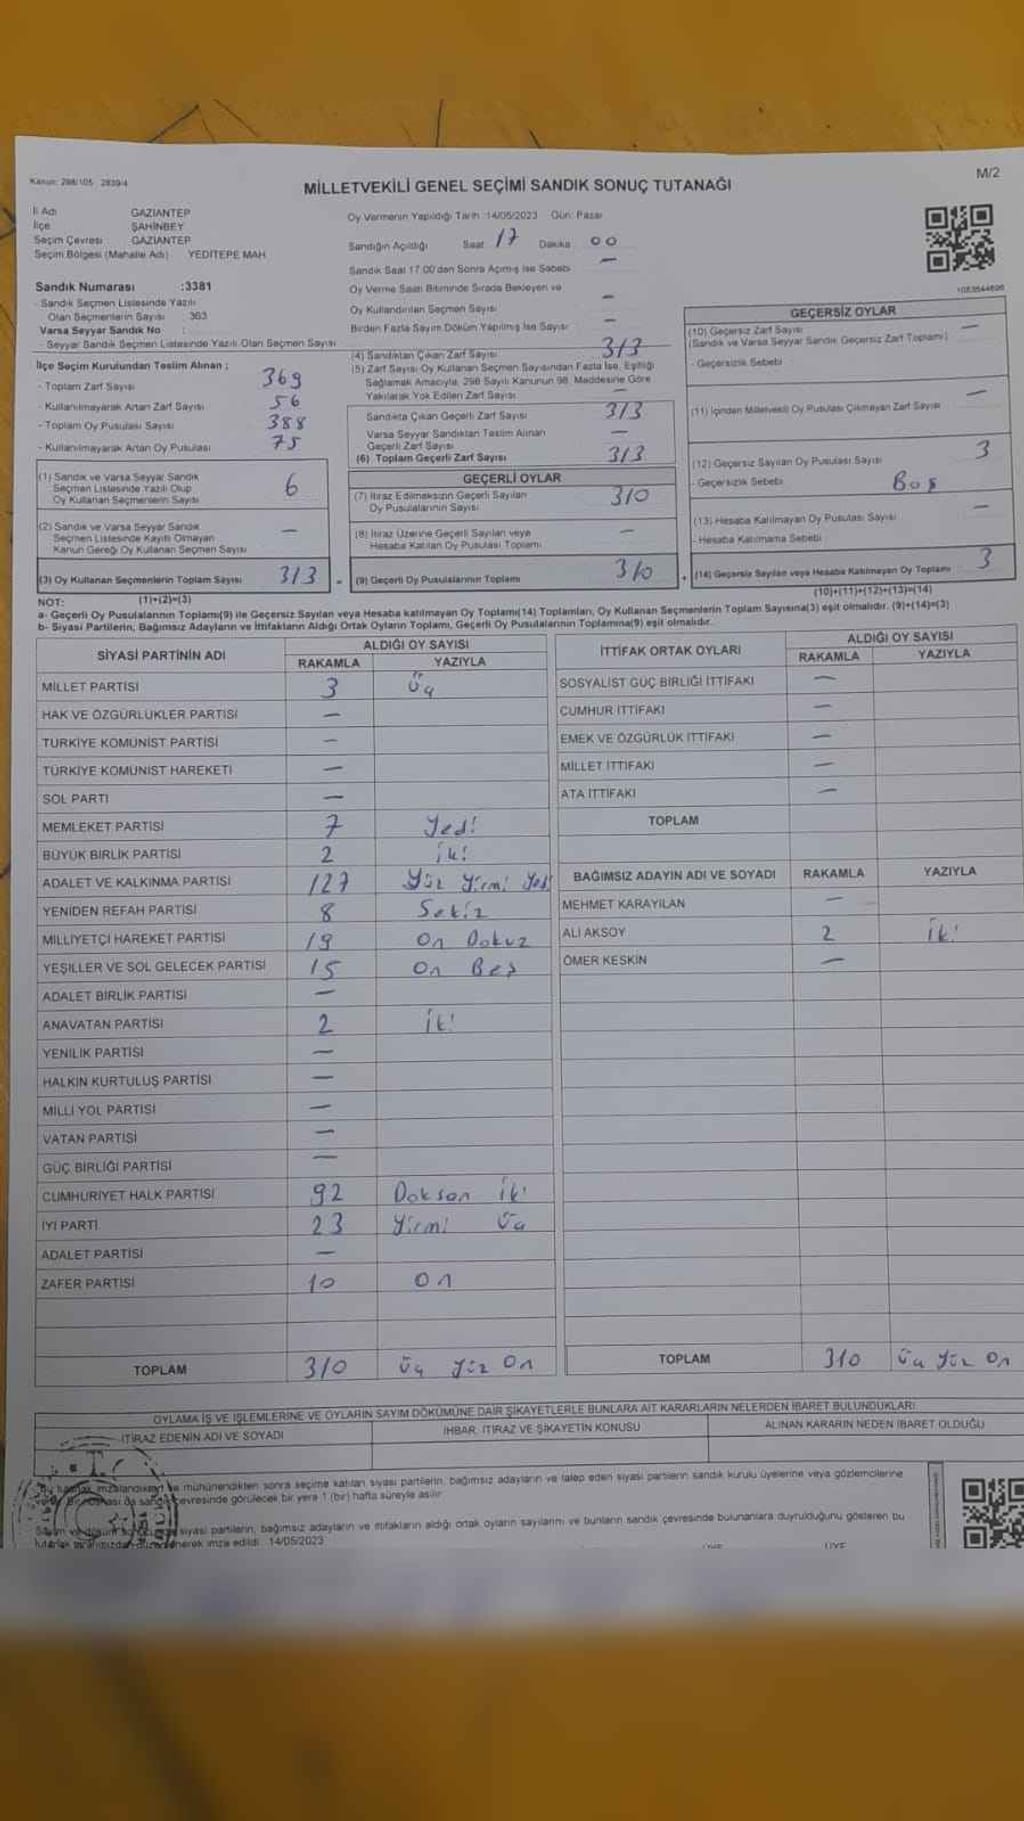 Kanun: 298/105 2839/4
M/2
MİLLETVEKİLİ GENEL SEÇİMİ SANDIK SONUÇ TUTANAĞI
İl Adı GAZİANTEP
İlçe ŞAHİNBEY
Seçim Çevresi GAZİANTEP
Seçim Bölgesi (Mahalle Adı) YEDİTEPE MAH
Sandık Numarası :3381
- Sandık Seçmen Listesinde Yazılı
Olan Seçmenlerin Sayısı : 363
Varsa Seyyar Sandık No :
- Seyyar Sandık Seçmen Listesinde Yazılı Olan Seçmen Sayısı
İlçe Seçim Kurulundan Teslim Alınan ;
- Toplam Zarf Sayısı 369
- Kullanılmayarak Artan Zarf Sayısı 56
- Toplam Oy Pusulası Sayısı 388
- Kullanılmayarak Artan Oy Pusulası 75
(1) Sandık ve Varsa Seyyar Sandık
Seçmen Listesinde Yazılı Olup
Oy Kullanan Seçmenlerin Sayısı 6
(2) Sandık ve Varsa Seyyar Sandık
Seçmen Listesinde Kayıtlı Olmayan
Kanun Gereği Oy Kullanan Seçmen Sayısı —
(3) Oy Kullanan Seçmenlerin Toplam Sayısı 313
Oy Vermenin Yapıldığı Tarih :14/05/2023 Gün: Pazar
Sandığın Açıldığı Saat 17 Dakika 00
Sandık Saat 17:00'dan Sonra Açılmış İse Sebebi —
Oy Verme Saati Bitiminde Sırada Bekleyen ve
Oy Kullandırılan Seçmen Sayısı —
Birden Fazla Sayım Döküm Yapılmış İse Sayısı —
(4) Sandıktan Çıkan Zarf Sayısı 313
(5) Zarf Sayısı Oy Kullanan Seçmen Sayısından Fazla İse, Eşitliği
Sağlamak Amacıyla, 298 Sayılı Kanunun 98. Maddesine Göre
Yakılarak Yok Edilen Zarf Sayısı —
Sandıkta Çıkan Geçerli Zarf Sayısı 313
Varsa Seyyar Sandıktan Teslim Alınan
Geçerli Zarf Sayısı —
(6) Toplam Geçerli Zarf Sayısı 313
GEÇERLİ OYLAR
(7) İtiraz Edilmeksizin Geçerli Sayılan
Oy Pusulalarının Sayısı 310
(8) İtiraz Üzerine Geçerli Sayılan veya
Hesaba Katılan Oy Pusulası Toplamı —
(9) Geçerli Oy Pusulalarının Toplamı 310
GEÇERSİZ OYLAR
(10) Geçersiz Zarf Sayısı —
(Sandık ve Varsa Seyyar Sandık Geçersiz Zarf Toplamı)
- Geçersizlik Sebebi
(11) İçinden Milletvekili Oy Pusulası Çıkmayan Zarf Sayısı —
(12) Geçersiz Sayılan Oy Pusulası Sayısı 3
- Geçersizlik Sebebi Boş
(13) Hesaba Katılmayan Oy Pusulası Sayısı —
- Hesaba Katılmama Sebebi
(14) Geçersiz Sayılan veya Hesaba Katılmayan Oy Toplamı 3
NOT: (1)+(2)=(3)
(10)+(11)+(12)+(13)=(14)
a- Geçerli Oy Pusulalarının Toplamı(9) ile Geçersiz Sayılan veya Hesaba katılmayan Oy Toplamı(14) Toplamları, Oy Kullanan Seçmenlerin Toplam Sayısına(3) eşit olmalıdır. (9)+(14)=(3)
b- Siyasi Partilerin, Bağımsız Adayların ve İttifakların Aldığı Ortak Oyların Toplamı, Geçerli Oy Pusulalarının Toplamına(9) eşit olmalıdır.
SİYASİ PARTİNİN ADI ALDIĞI OY SAYISI
RAKAMLA YAZIYLA
MİLLET PARTİSİ 3 Üç
HAK VE ÖZGÜRLÜKLER PARTİSİ —
TÜRKİYE KOMÜNİST PARTİSİ —
TÜRKİYE KOMÜNİST HAREKETİ —
SOL PARTİ —
MEMLEKET PARTİSİ 7 Yedi
BÜYÜK BİRLİK PARTİSİ 2 iki
ADALET VE KALKINMA PARTİSİ 127 Yüz Yirmi Yedi
YENİDEN REFAH PARTİSİ 8 Sekiz
MİLLİYETÇİ HAREKET PARTİSİ 19 On Dokuz
YEŞİLLER VE SOL GELECEK PARTİSİ 15 On Beş
ADALET BİRLİK PARTİSİ —
ANAVATAN PARTİSİ 2 iki
YENİLİK PARTİSİ —
HALKIN KURTULUŞ PARTİSİ —
MİLLİ YOL PARTİSİ —
VATAN PARTİSİ —
GÜÇ BİRLİĞİ PARTİSİ —
CUMHURİYET HALK PARTİSİ 92 Doksan iki
İYİ PARTİ 23 Yirmi Üç
ADALET PARTİSİ —
ZAFER PARTİSİ 10 On
TOPLAM 310 Üç Yüz On
İTTİFAK ORTAK OYLARI ALDIĞI OY SAYISI
RAKAMLA YAZIYLA
SOSYALİST GÜÇ BİRLİĞİ İTTİFAKI —
CUMHUR İTTİFAKI —
EMEK VE ÖZGÜRLÜK İTTİFAKI —
MİLLET İTTİFAKI —
ATA İTTİFAKI —
TOPLAM
BAĞIMSIZ ADAYIN ADI VE SOYADI RAKAMLA YAZIYLA
MEHMET KARAYILAN —
ALİ AKSOY 2 İki
ÖMER KESKİN —
TOPLAM 310 Üç Yüz On
OYLAMA İŞ VE İŞLEMLERİNE VE OYLARIN SAYIM DÖKÜMÜNE DAİR ŞİKAYETLERLE BUNLARA AİT KARARLARIN NELERDEN İBARET BULUNDUKLARI
İTİRAZ EDENİN ADI VE SOYADI İHBAR, İTİRAZ VE ŞİKAYETİN KONUSU ALINAN KARARIN NEDEN İBARET OLDUĞU
ve mühürlendikten sonra seçime katılan siyasi partilerin, bağımsız adayların ve talep eden siyasi partilerin sandık kurulu üyelerine veya gözlemcilerine
da sandık çevresinde görülecek bir yere 1 (bir) hafta süreyle asılır.
siyasi partilerin, bağımsız adayların ve ittifakların aldığı ortak oyların sayılarını ve bunların sandık çevresinde bulunanlara duyrulduğunu gösteren bu
imza edildi. 14/05/2023
ÜYE ÜYE